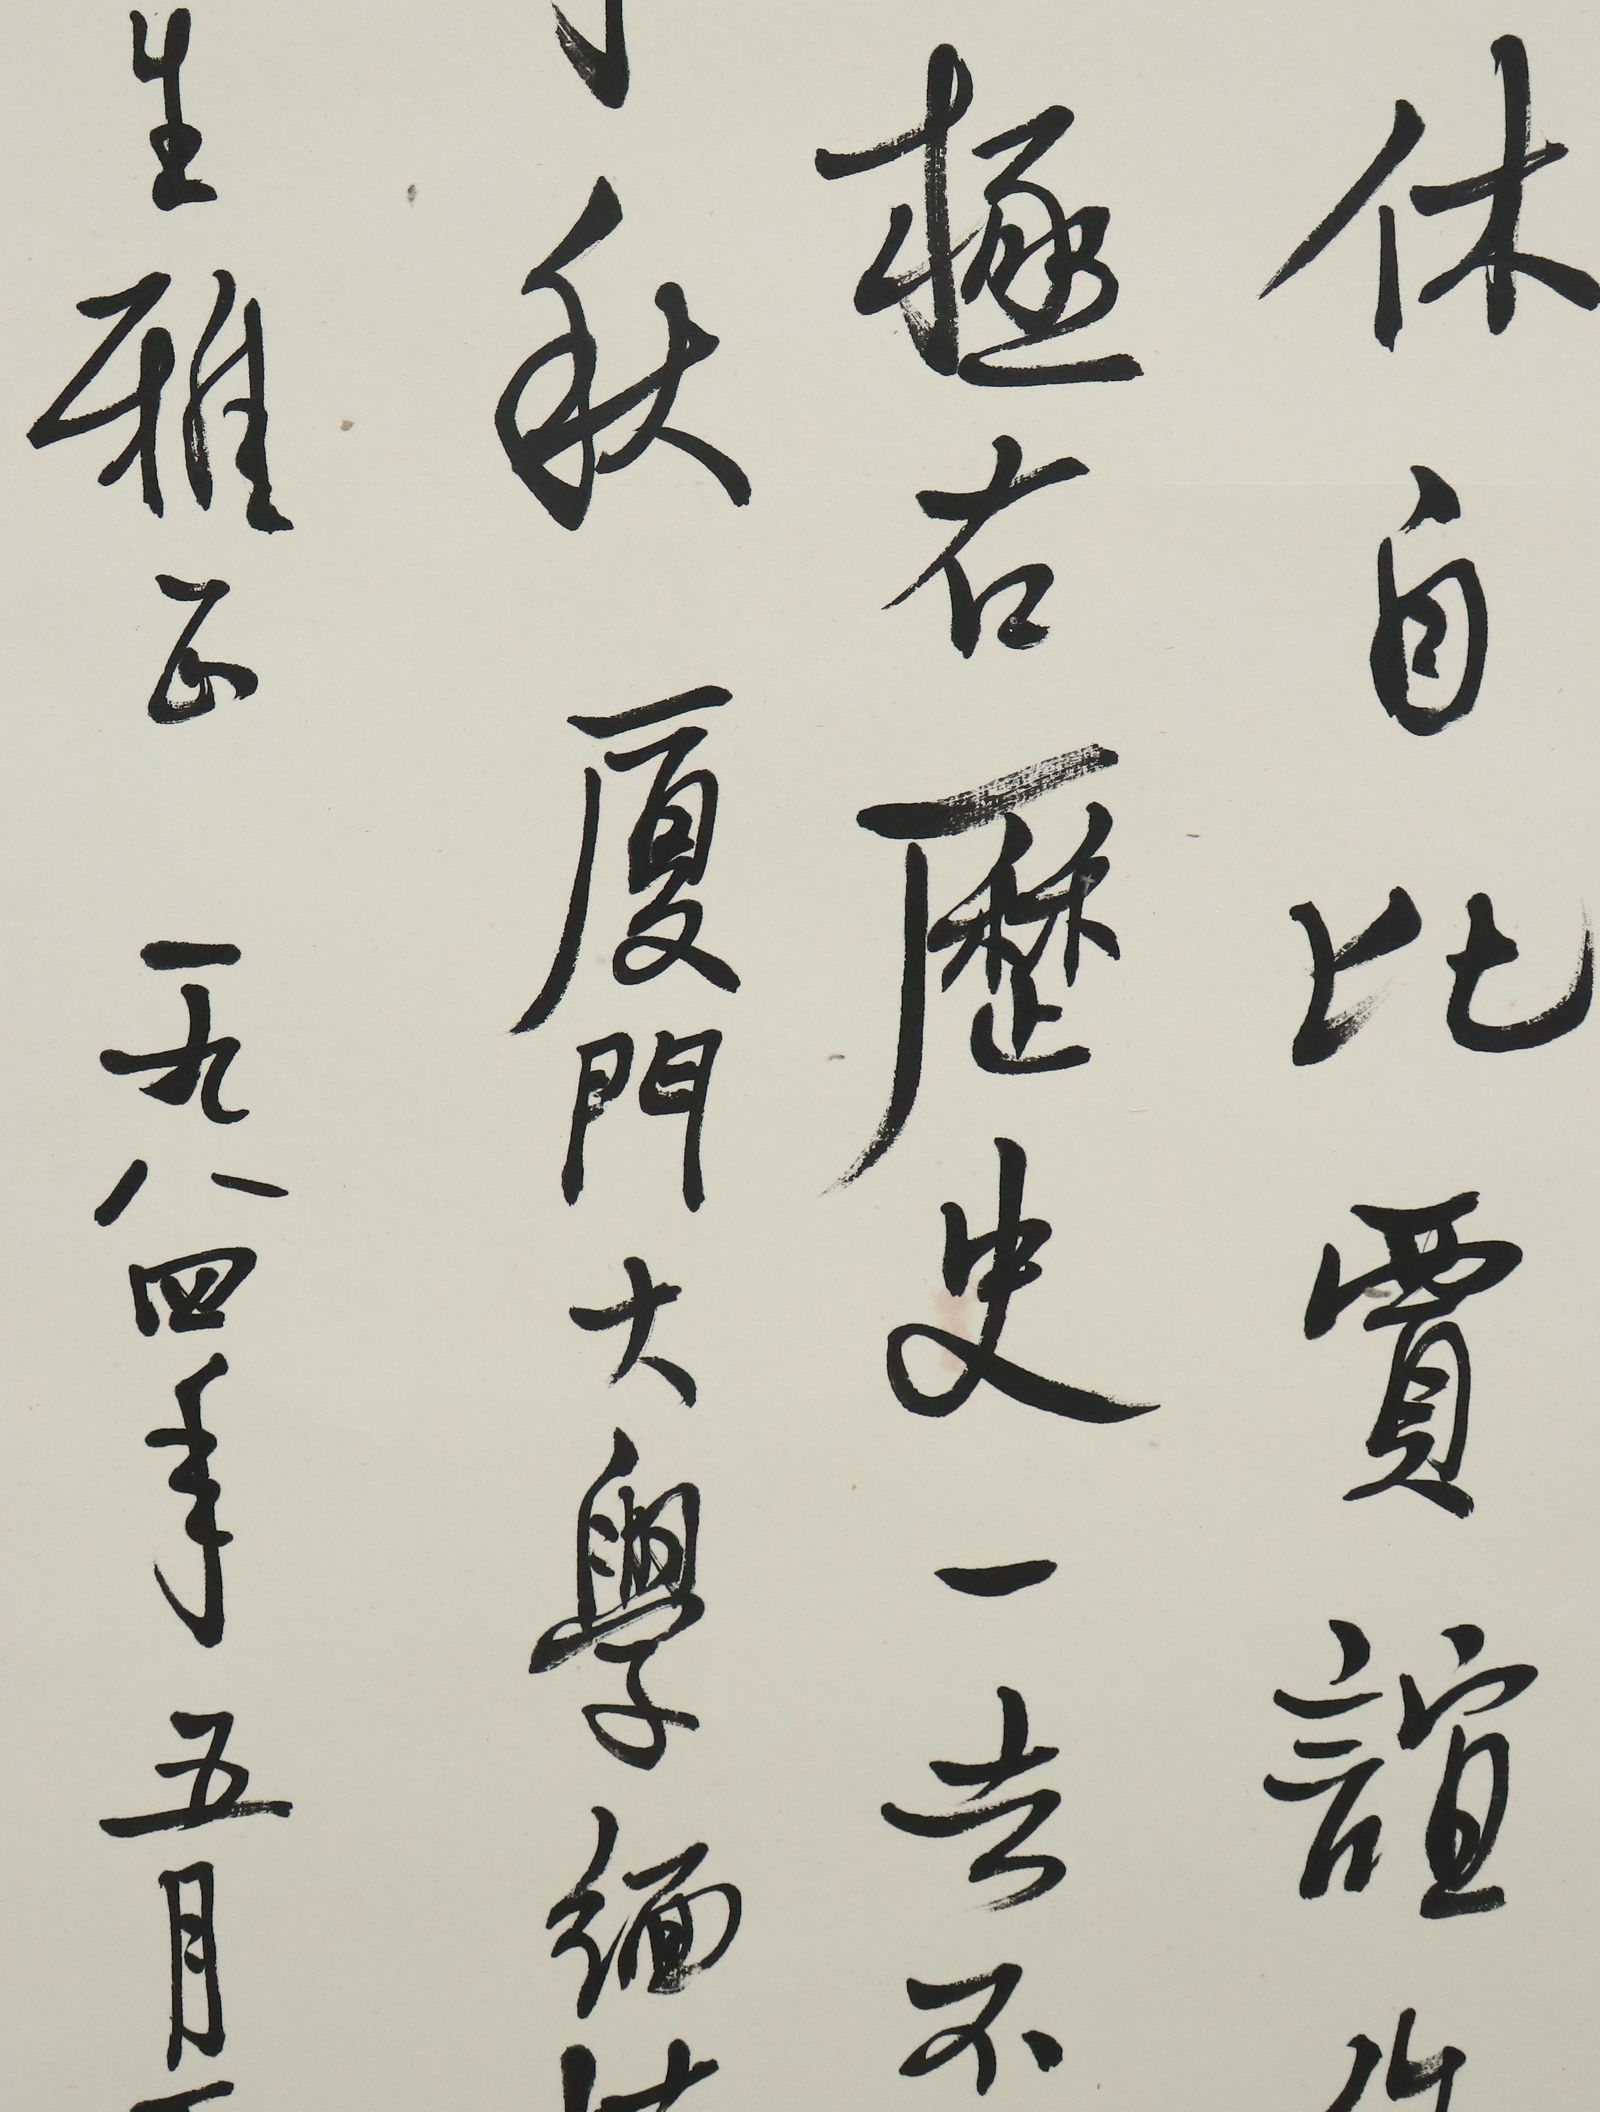 休自比賈誼
極右歷史一去不
秋厦門大學緬
生雅正一九八四年五月